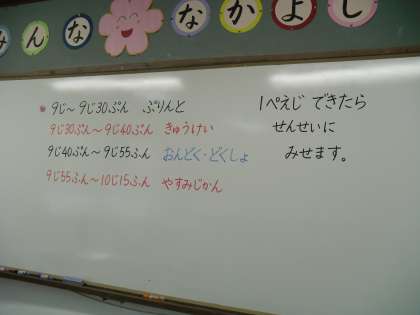 みんな なかよし
9じ〜9じ30ぷん ぷりんと
9じ30ぷん〜9じ40ぷん きゅうけい
9じ40ぷん〜9じ55ふん おんどく・どくしょ
9じ55ふん〜10じ15ふん やすみじかん
1ぺえじ できたら
せんせいに
みせます。